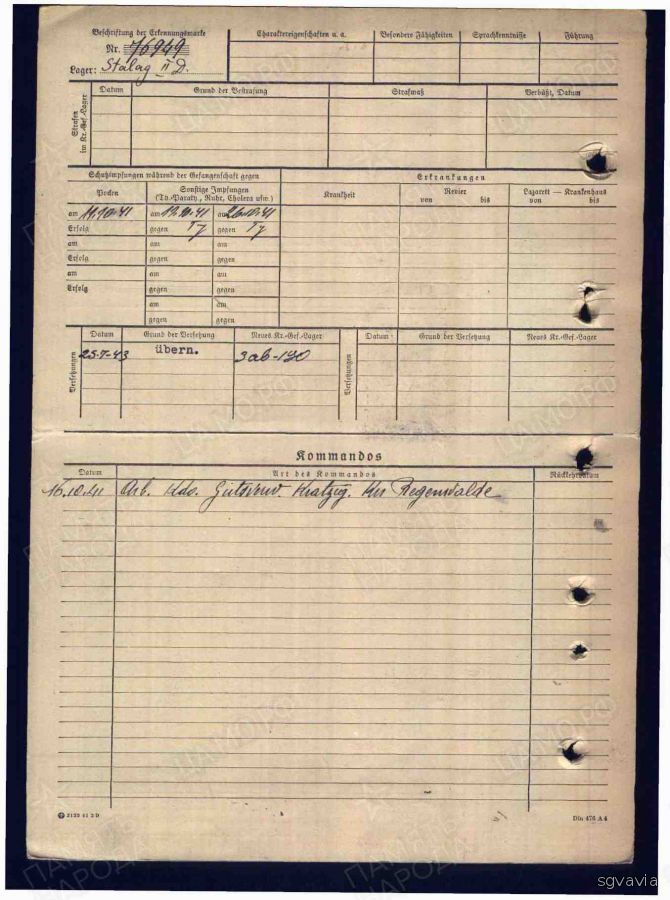 Beschriftung der Erkennungsmarke
Nr. 76949
Lager: Stalag II D.
Charaktereigenschaften u. a.
Besondere Fähigkeiten
Sprachkenntnisse
Führung
Strafen im Kr.-Gef.-Lager
Datum
Grund der Bestrafung
Strafmaß
Verbüßt, Datum
Schutzimpfungen während der Gefangenschaft gegen
Erkrankungen
Pocken
Sonstige Impfungen
(Ty.-Paraty., Ruhr, Cholera usw.)
Krankheit
Revier
von bis
Lazarett — Krankenhaus
von bis
am 11.10.41 am 19.10.41 am 26.10.41
Erfolg gegen Ty gegen Ty
am am am
Erfolg gegen gegen
am am am
Erfolg gegen gegen
am am
gegen gegen
Versetzungen
Datum Grund der Versetzung Neues Kr.-Gef.-Lager
25.7.43 übern.
Versetzungen
Datum Grund der Versetzung Neues Kr.-Gef.-Lager
Kommandos
Datum Art des Kommandos Rückkehrdatum
16.10.41 Arb. Kdo. Gutsverw. Kratzig. Krs Regenwalde
2125 41 2 D
Din 476 A 4
ПАМЯТЬ НАРОДА
ЦАМО.РФ
sgvavia